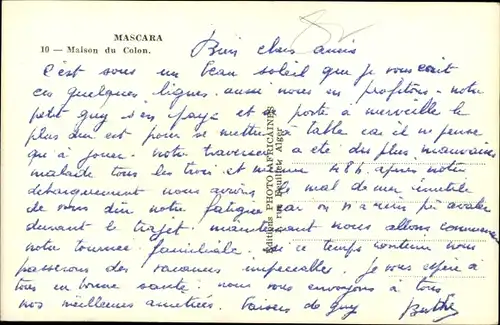 MASCARA
10 — Maison du Colon.
Bien chers amis
C'est sous un beau soleil que je vous écrit
ces quelques lignes. aussi nous en profitons. notre
petit guy s'en paye et se porte a merveille le
plus dur est pour se mettre à table car il ne pense
qu'à jouer. notre traversée a été des plus mauvaises
malade tous les trois et même 48 h. après notre
débarquement nous avions le mal de mer inutile
de vous dire notre fatigue car on n'a rien pu avaler
durant le trajet. maintenant nous allons commencer
notre tournée familiale. si ce temps continu nous
passerons des vacances impeccables. je vous espère à
tous en bonne santé. nous vous envoyons à tous
nos meilleures amitiées. Baisers de guy
Berthe
Editions PHOTO-AFRICAINES
rue Feuillet, Alger